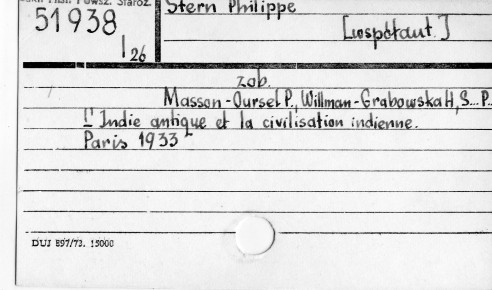 Powsz. Staroż.
51938
I 26
Stern Philippe
[współaut.]
zob.
Masson-Oursel P., Willman-Grabowska H, S... P...
L'Indie antique et la civilisation indienne.
Paris 1933
DUJ 897/73. 15000